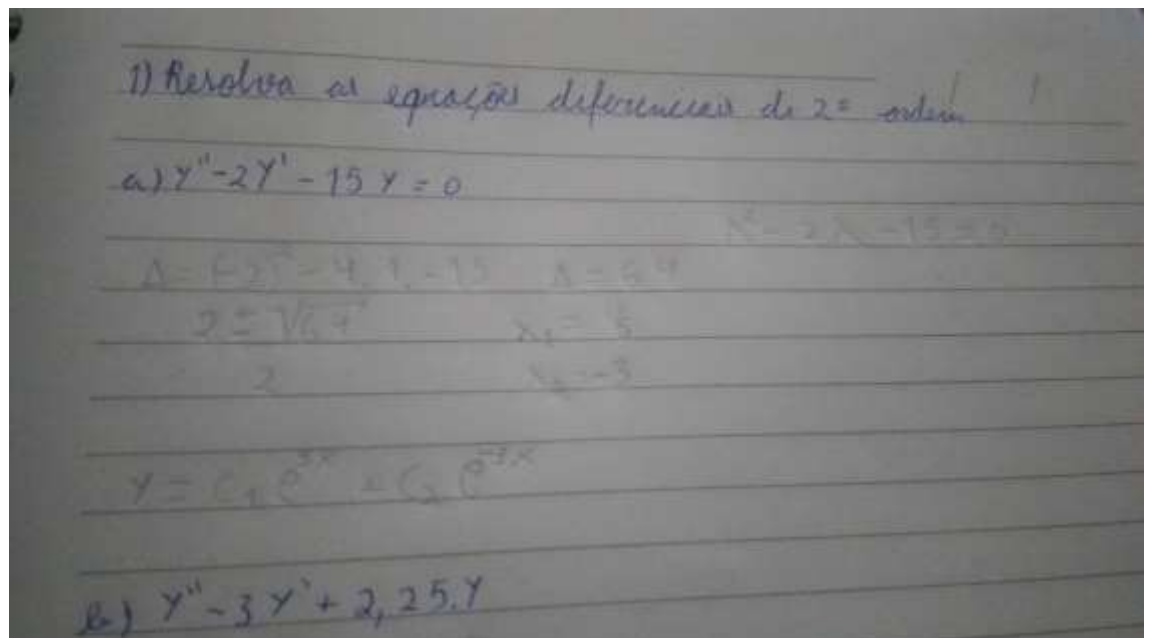 1) Resolva as equações diferenciais de 2ª ordem
a) y'' - 2y' - 15 y = 0
λ² - 2λ - 15 = 0
Δ = (-2)² - 4.1.-15 Δ = 64
2 ± √64 λ₁ = 5
2 λ₂ = -3
y = C₁ e^5x + C₂ e^-3x
b) y'' - 3y' + 2,25.y